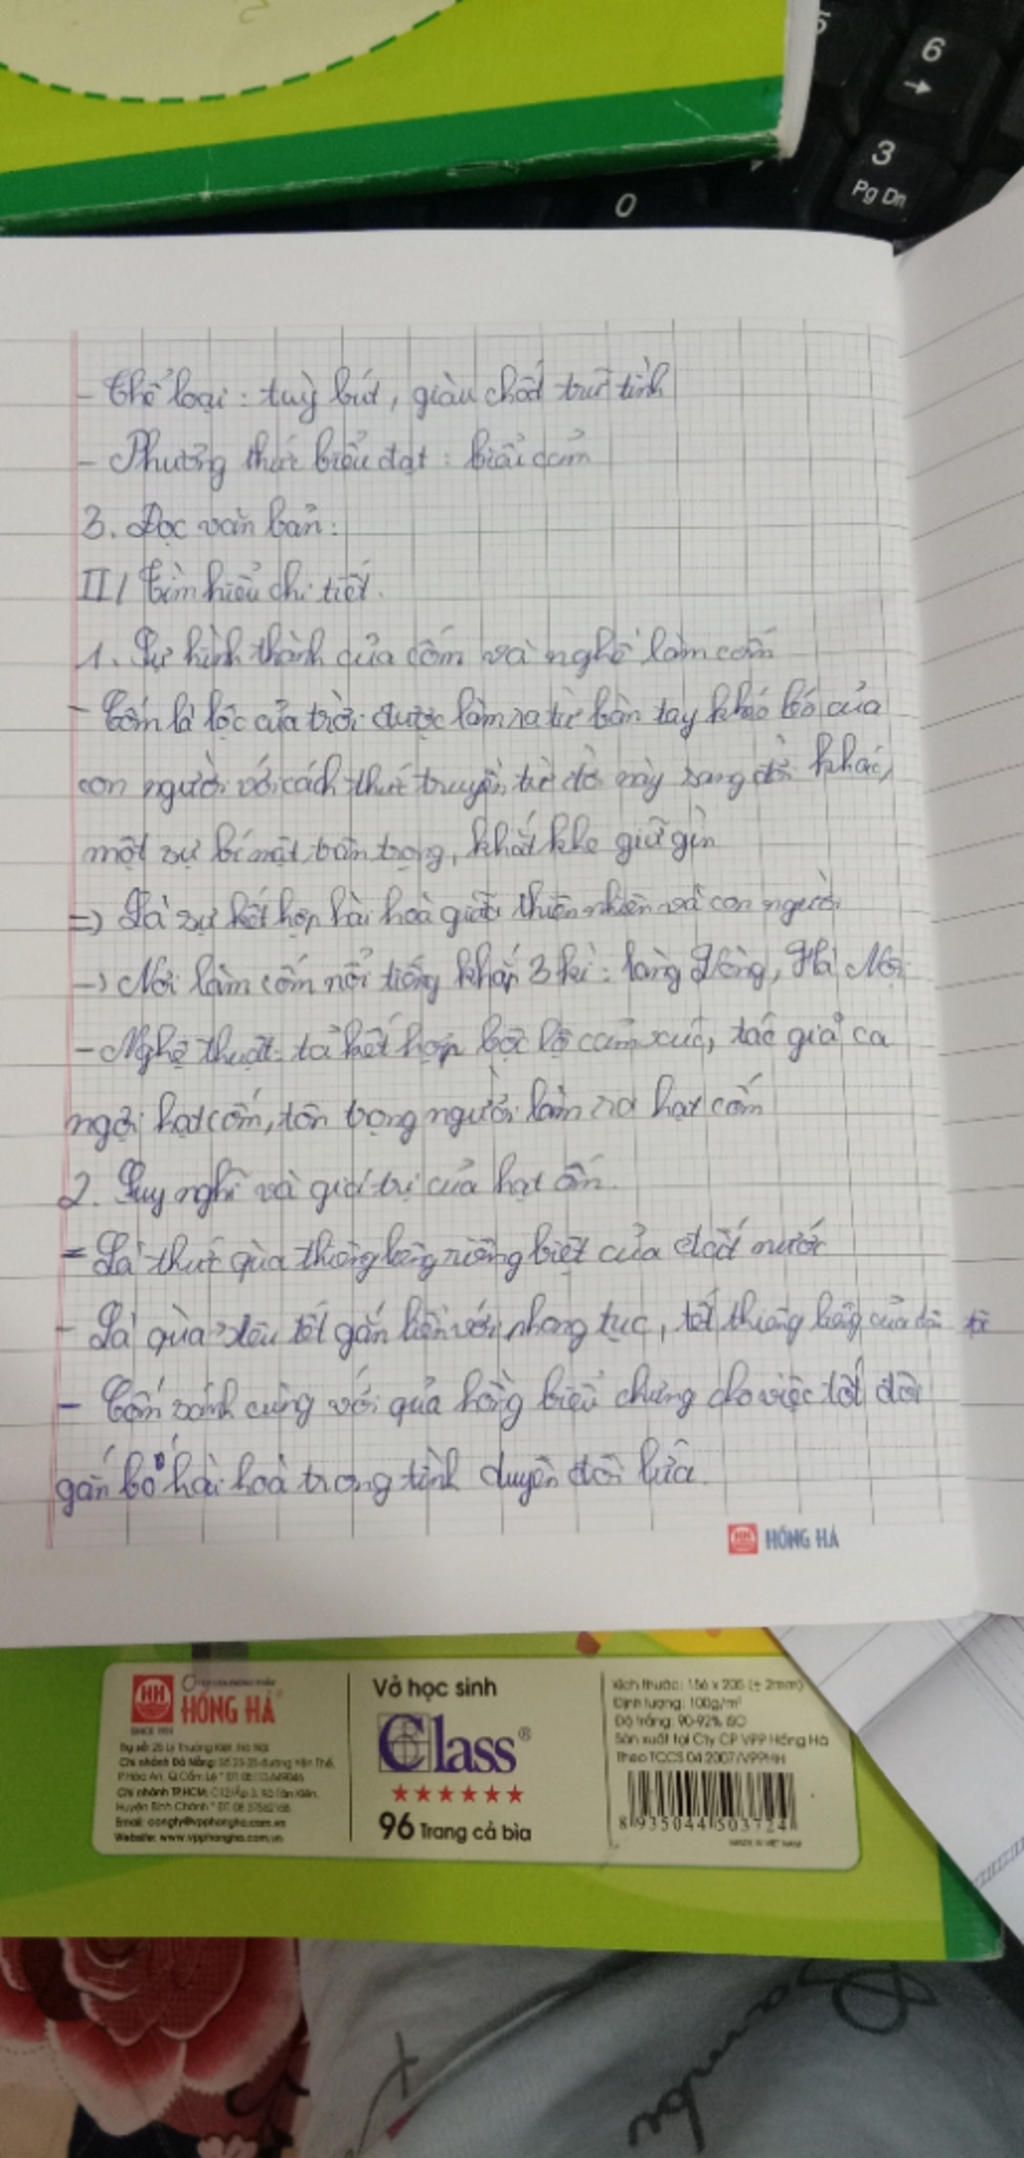 5
6
3
Pg Dn
0
- Thể loại: tuỳ bút, giàu chất trữ tình
- Phương thức biểu đạt: biểu cảm
3. Đọc văn bản:
II/ Tìm hiểu chi tiết.
1. Sự hình thành của cốm và nghề làm cốm
- Cốm là lộc của trời được làm ra từ bàn tay khéo léo của
con người với cách thức truyền từ đời này sang đời khác,
một sự bí mật trân trọng, khắt khe giữ gìn
=> Là sự kết hợp hài hoà giữa thiên nhiên và con người
-> Nơi làm cốm nổi tiếng khắp 3 kì: làng Vòng, Hà Nội
- Nghệ thuật: tả kết hợp bộc lộ cảm xúc, tác giả ca
ngợi hạt cốm, tôn trọng người làm ra hạt cốm
2. Suy nghĩ và giá trị của hạt cốm.
- Là thức quà thiêng liêng riêng biệt của đất nước
- Là quà sêu tết gắn liền với phong tục, tết thiêng liêng của
- Cốm sánh cùng với quả hồng biểu chưng cho việc tốt đôi
gắn bó hài hoà trong tình duyên đôi lứa.
HỒNG HÀ
HỒNG HÀ
SINCE 1959
Trụ sở: 25 Lý Thường Kiệt, Hà Nội
Chi nhánh Đà Nẵng:
Chi nhánh TP.HCM:
Huyện Bình Chánh
Email: congty@vpphongha.com.vn
Website: www.vpphongha.com.vn
Vở học sinh
Class®
96 Trang cả bìa
Kích thước: 156 x 205 (± 2mm)
Định lượng: 100g/m²
Độ trắng: 90-92% ISO
Sản xuất tại Cty CP VPP Hồng Hà
Theo TCCS 04:2007/VPPHH
8 935044 503724
MADE IN VIET NAM